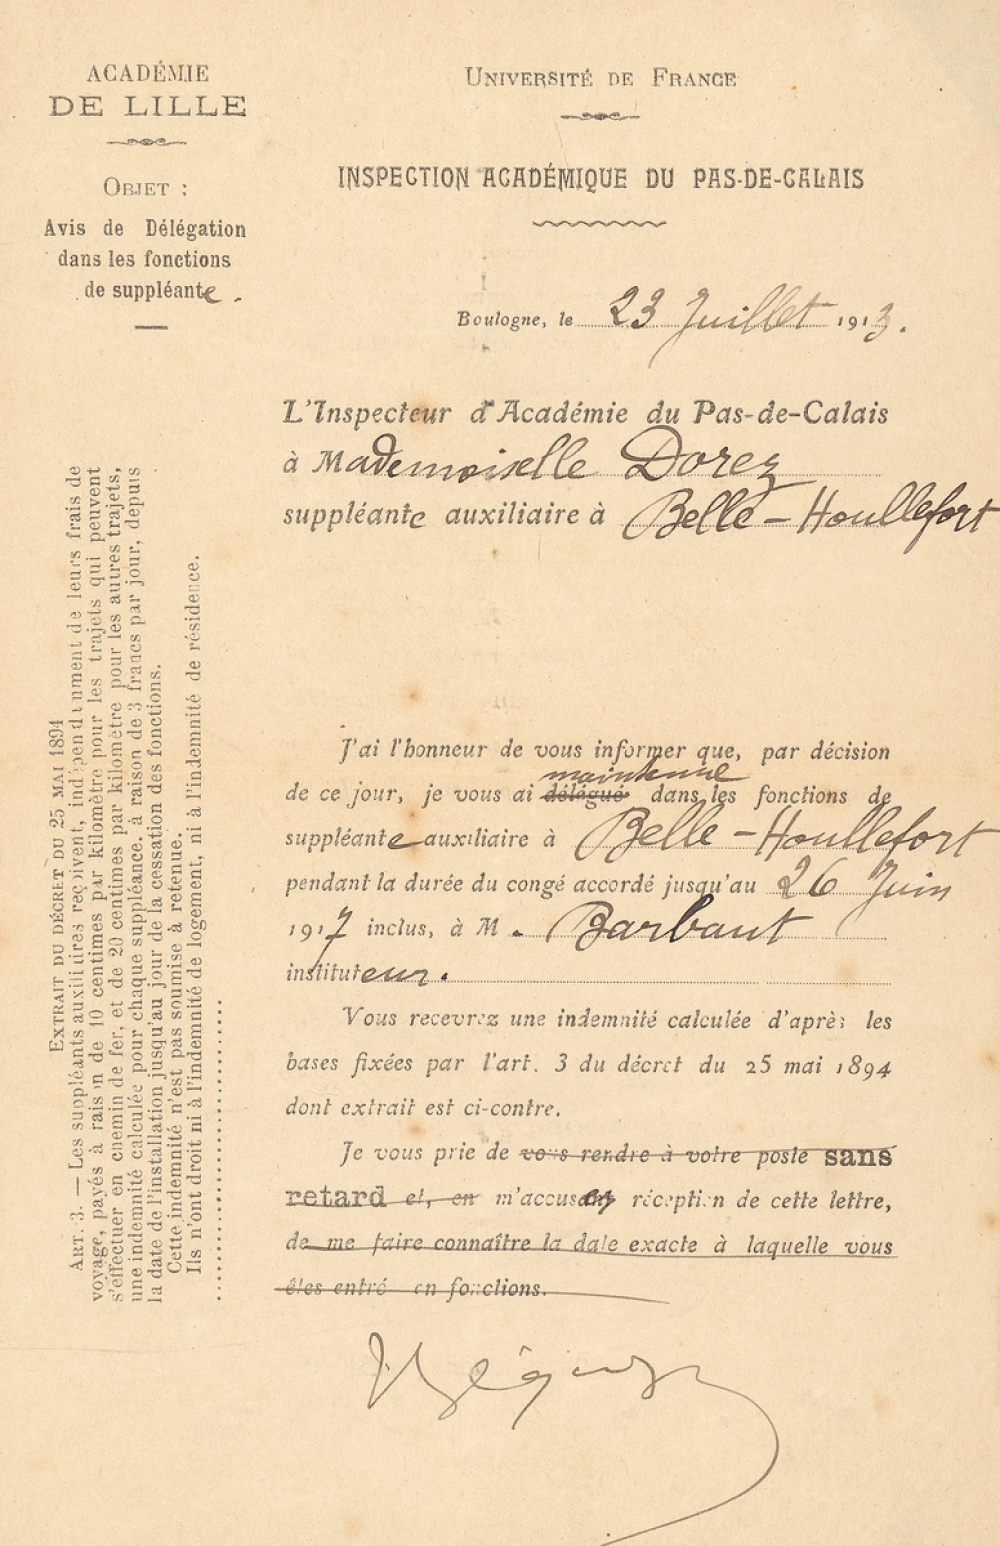 ACADÉMIE
DE LILLE
OBJET :
Avis de Délégation
dans les fonctions
de suppléante.
UNIVERSITÉ DE FRANCE
INSPECTION ACADÉMIQUE DU PAS-DE-CALAIS
Boulogne, le 23 Juillet 1913.
L'Inspecteur d'Académie du Pas-de-Calais
à Mademoiselle Dorez
suppléante auxiliaire à Belle-Houllefort
J'ai l'honneur de vous informer que, par décision
maintenue
de ce jour, je vous ai délégué dans les fonctions de
suppléante auxiliaire à Belle-Houllefort
pendant la durée du congé accordé jusqu'au 26 Juin
1917 inclus, à M. Barbaut
instituteur.
Vous recevrez une indemnité calculée d'après les
bases fixées par l'art. 3 du décret du 25 mai 1894
dont extrait est ci-contre.
Je vous prie de vous rendre à votre poste sans
retard et, en m'accuser réception de cette lettre,
de me faire connaître la date exacte à laquelle vous
êtes entré en fonctions.
EXTRAIT DU DÉCRET DU 25 MAI 1894
ART. 3. — Les suppléants auxiliaires reçoivent, indépendamment de leurs frais de
voyage, payés à raison de 10 centimes par kilomètre pour les trajets qui peuvent
s'effectuer en chemin de fer, et de 20 centimes par kilomètre pour les autres trajets,
une indemnité calculée pour chaque suppléance, à raison de 3 francs par jour, depuis
la date de l'installation jusqu'au jour de la cessation des fonctions.
Cette indemnité n'est pas soumise à retenue.
Ils n'ont droit ni à l'indemnité de logement, ni à l'indemnité de résidence.